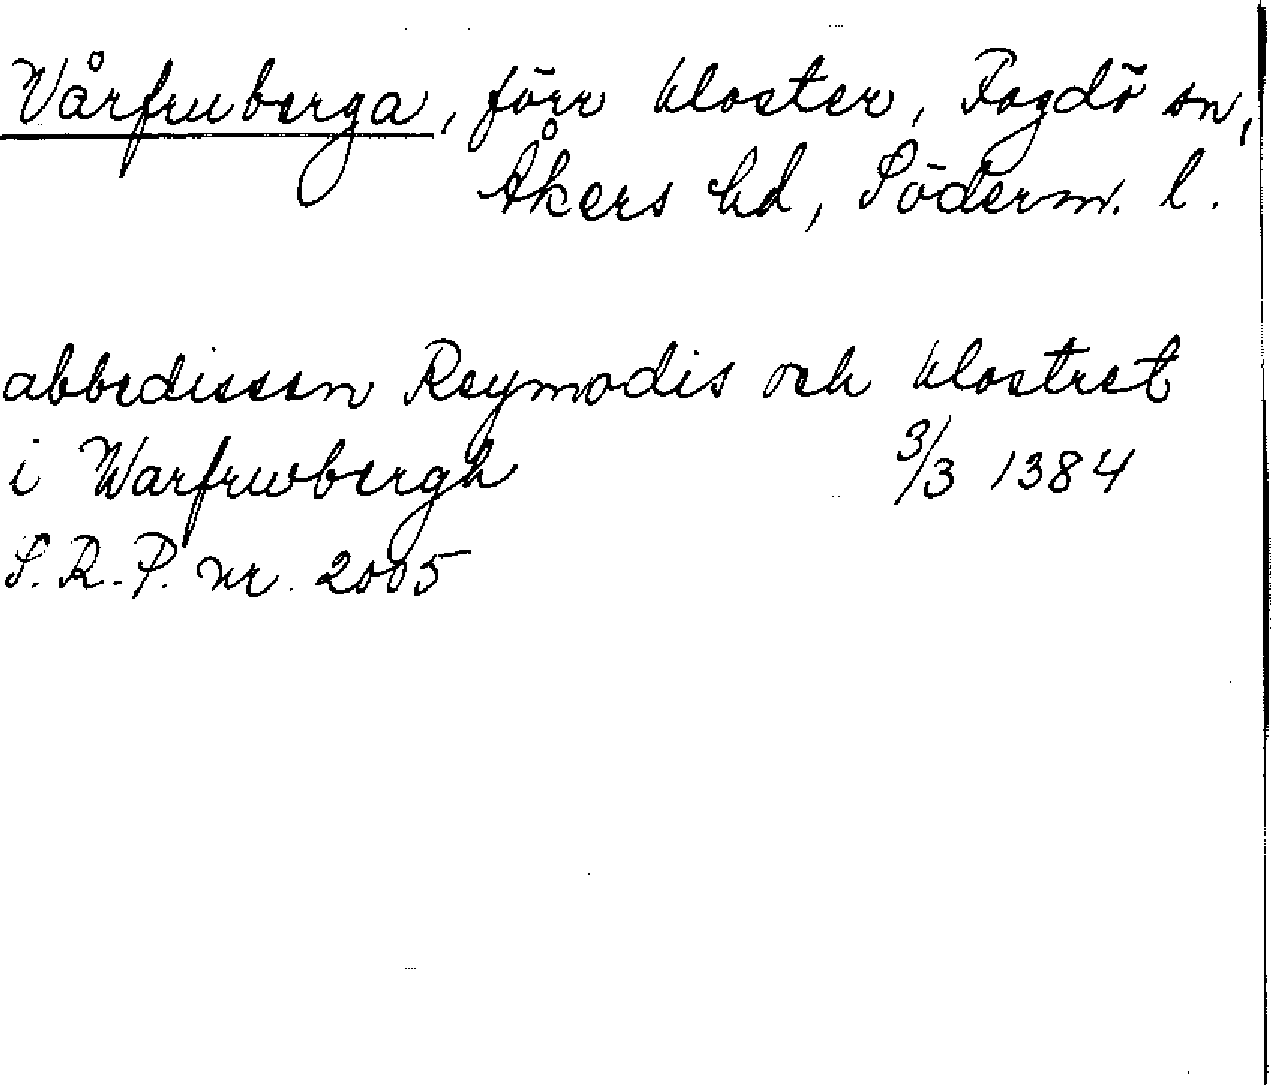 Vårfruberga, förr kloster, Fogdö sn,
Åkers hd, Söderm. l.
abbedissen Reymodis och klostret
i Warfrwbergh 3/3 1384
S.R.P. nr. 2005